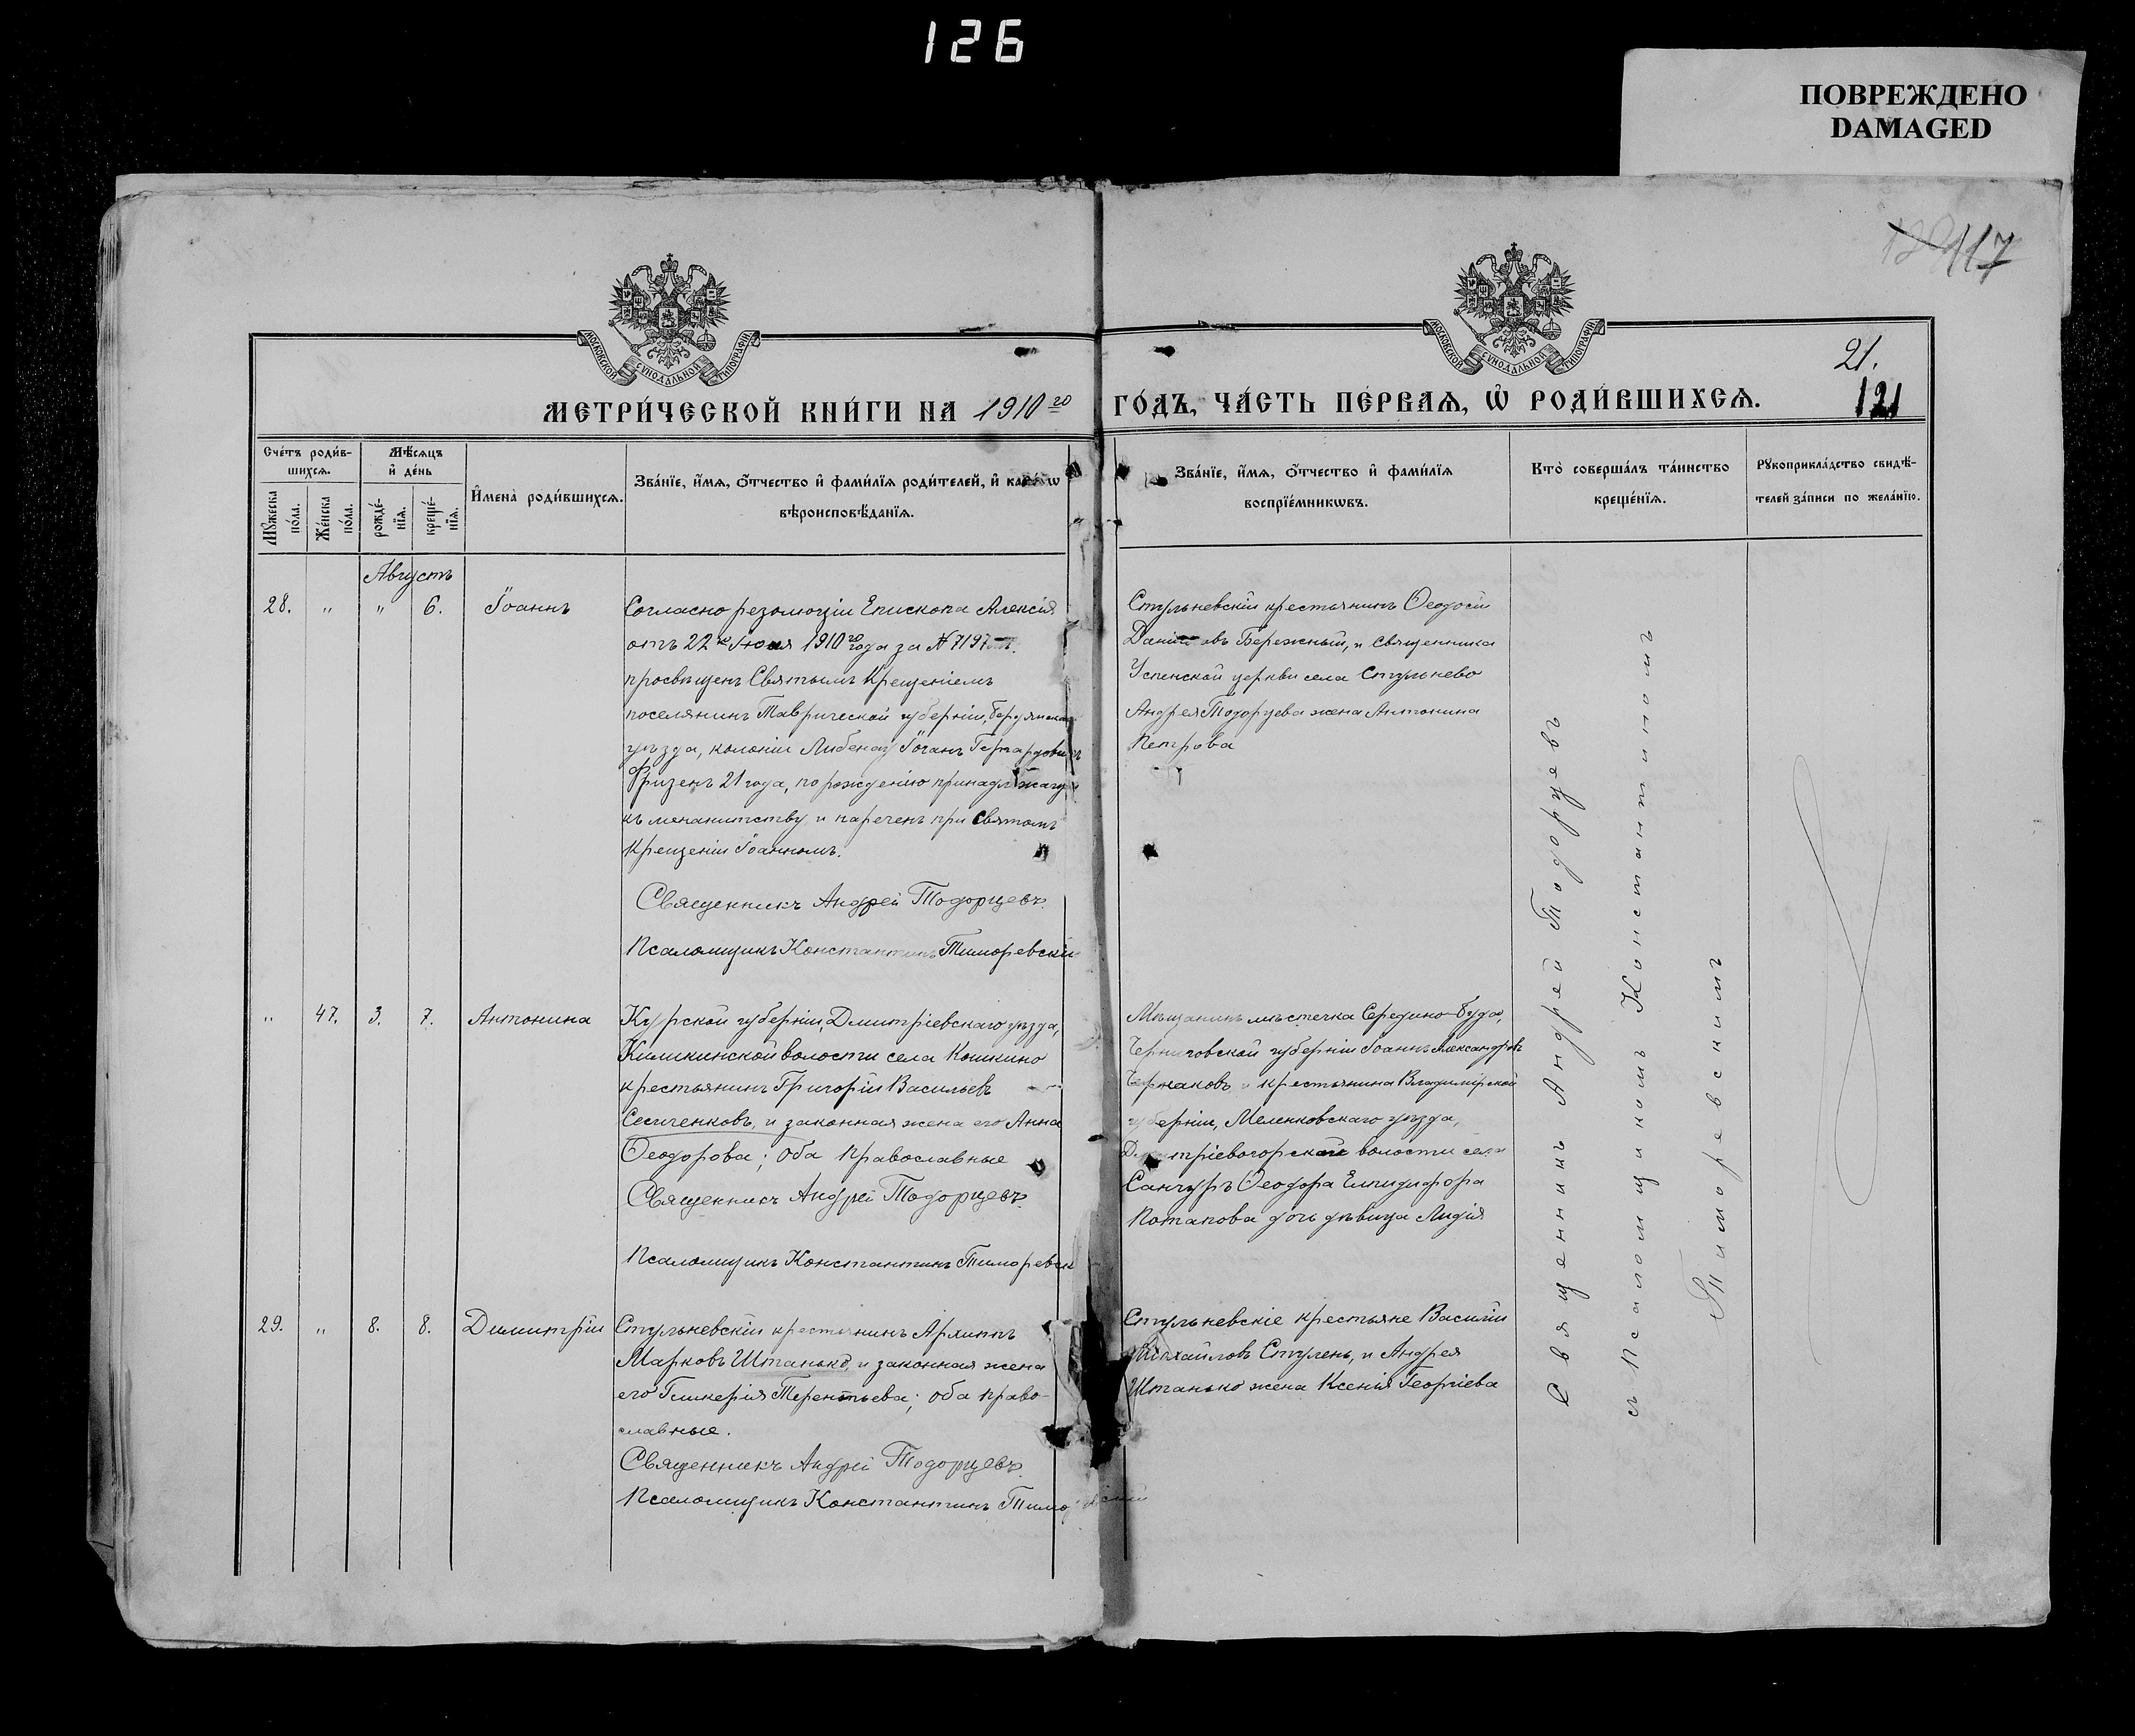 126
ПОВРЕЖДЕНО
DAMAGED
117
21.
121
МОСКОВСКОЙ СѴНОДАЛЬНОЙ ТИПОГРАФІИ
МОСКОВСКОЙ СѴНОДАЛЬНОЙ ТИПОГРАФІИ
МЕТРИ́ЧЕСКОЙ КНИ́ГИ НА 1910 го ГО́ДЪ, ЧА́СТЬ ПЕ́РВАЯ, Ѡ҆ РОДИ́ВШИХСЯ.
Сче́тъ роди́в-
шихся.
Мꙋжеска по́ла.
Же́нска по́ла.
Мѣ́сяцъ
и҆ де́нь
рожде́-
нїя.
креще́-
нїя.
И҆мена̀ роди́вшихся.
Зва́нїе, и҆́мя, ѻ҆́тчество и҆ фами́лїя роди́телей, и҆
вѣроисповѣ́данїя.
Зва́нїе, и҆́мя, ѻ҆́тчество и҆ фами́лїя
воспрїе́мникѡвъ.
Кто̀ соверша́лъ та́инство
креще́нїя.
Рꙋкоприкла́дство свидѣ́-
телей за́писи по жела́нїю.
Августъ
28. " " 6. Іоаннъ
Согласно резолюціи Епископа Алексія
отъ 22го Іюля 1910го года за № 7197
просвѣщенъ Святымъ Крещеніемъ
поселянинъ Таврической губерніи, Бердянскаго
уѣзда, колоніи Либенау Іоганъ Гергардовичъ
Фризенъ 21 года, по рожденію принадлежащ
къ менанитству и нареченъ при Святомъ
Крещеніи Іоанномъ.
Священникъ Андрей Тодорцевъ.
Псаломщикъ Константинъ Тиморевскій
Стульневскій крестьянинъ Ѳеодосій
Даніиловъ Бережный, и священника
Успенской церкви села Стульнево
Андрея Тодорцева жена Антонина
Петрова
" 47. 3. 7. Антонина
Курской губерніи, Дмитріевскаго уѣзда,
волости села Кошкино
крестьянинъ Григорій Васильевъ
и законная жена его Анна
Ѳеодорова; оба православные
Священникъ Андрей Тодорцевъ.
Псаломщикъ Константинъ Тиморевскі
Мѣщанинъ мѣстечка Середино-Буда,
Черниговской губерніи Іоаннъ Александровъ
и крестьянина Владимірской
губерніи, Меленковскаго уѣзда,
Дмитріевогорской волости села
Санчуръ Ѳеодора Елпидифора
Потапова дочь дѣвица Лидія
29. " 8. 8. Димитрій
Стульневскій крестьянинъ
Марковъ Штанько, и законная жена
его Гликерія Терентьева; оба право-
славные.
Священникъ Андрей Тодорцевъ.
Псаломщикъ Константинъ Тиморевскій
Стульневскіе крестьяне Василій
Михайловъ Стулень, и Андрея
Штанько жена Ксенія Георгіева
Священникъ Андрей Тодорцевъ
съ псаломщикомъ Константиномъ
Тиморевскимъ